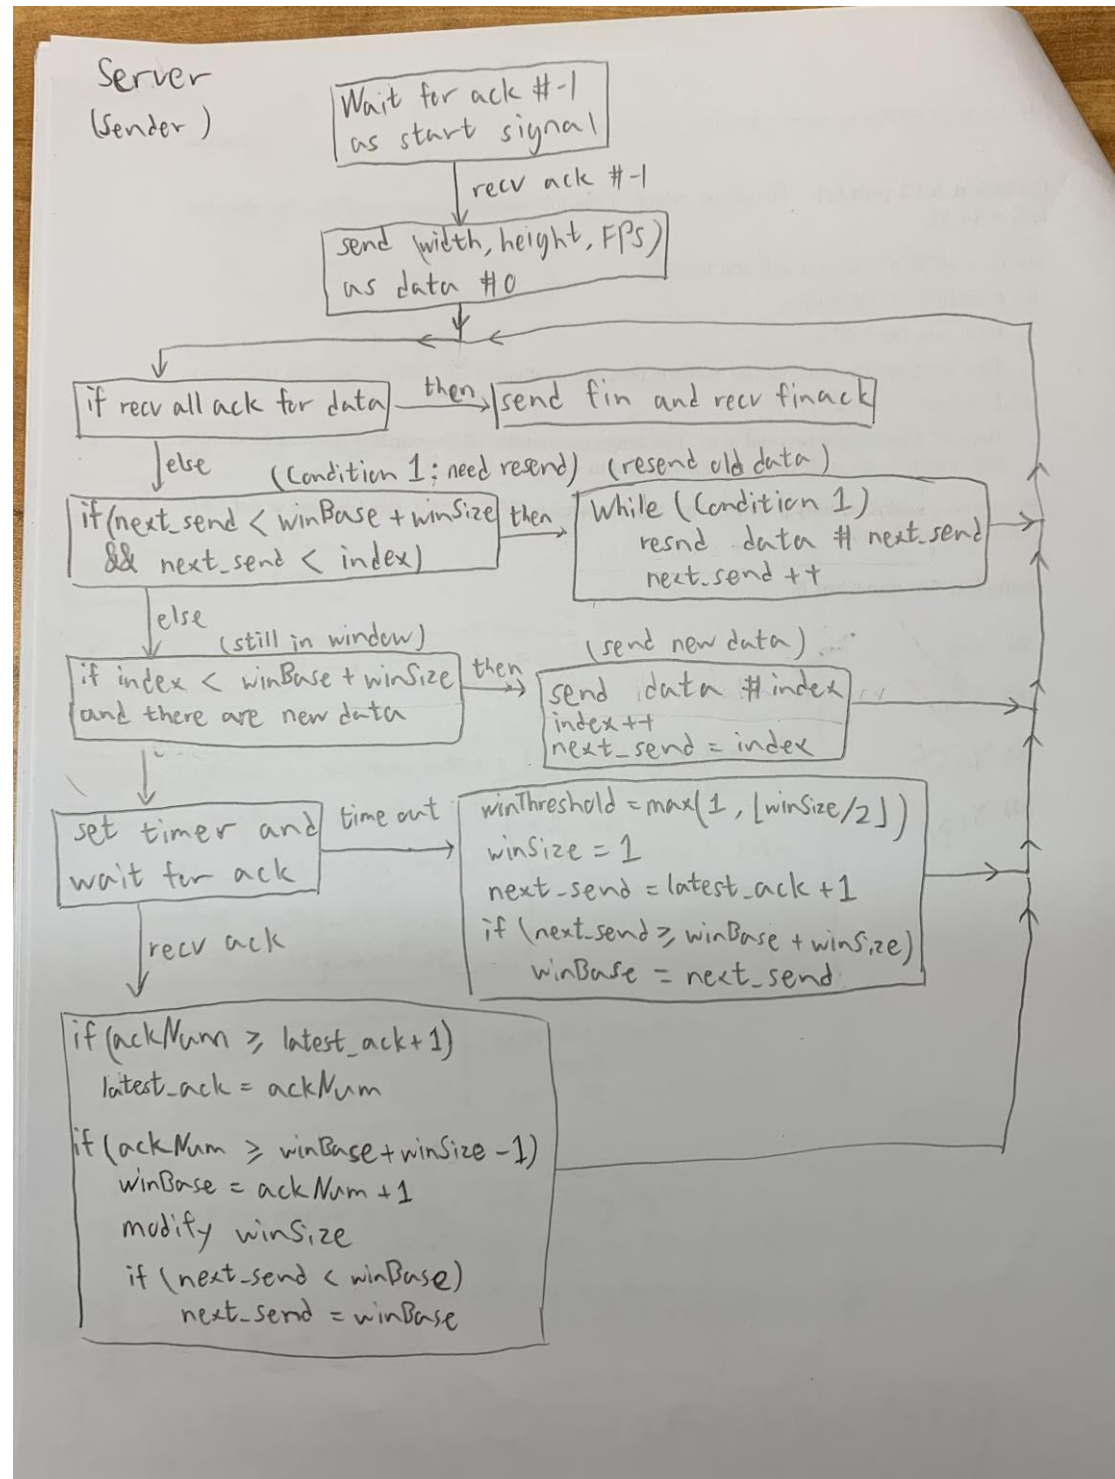 Server
(Sender)
Wait for ack #-1
as start signal
recv ack #-1
send (width, height, FPS)
as data #0
if recv all ack for data
then
send fin and recv finack
else
(Condition 1: need resend)
(resend old data)
if(next_send < winBase + winSize
&& next_send < index)
then
While (Condition 1)
resnd data # next_send
next_send ++
else
(still in window)
(send new data)
if index < winBase + winSize
and there are new data
then
send data # index
index++
next_send = index
set timer and
wait for ack
time out
winThreshold = max(1, ⌊winSize/2⌋)
winSize = 1
next_send = latest_ack + 1
if (next_send ≥ winBase + winSize)
winBase = next_send
recv ack
if (ackNum ≥ latest_ack+1)
latest_ack = ackNum
if (ackNum ≥ winBase + winSize - 1)
winBase = ackNum + 1
modify winSize
if (next_send < winBase)
next_send = winBase